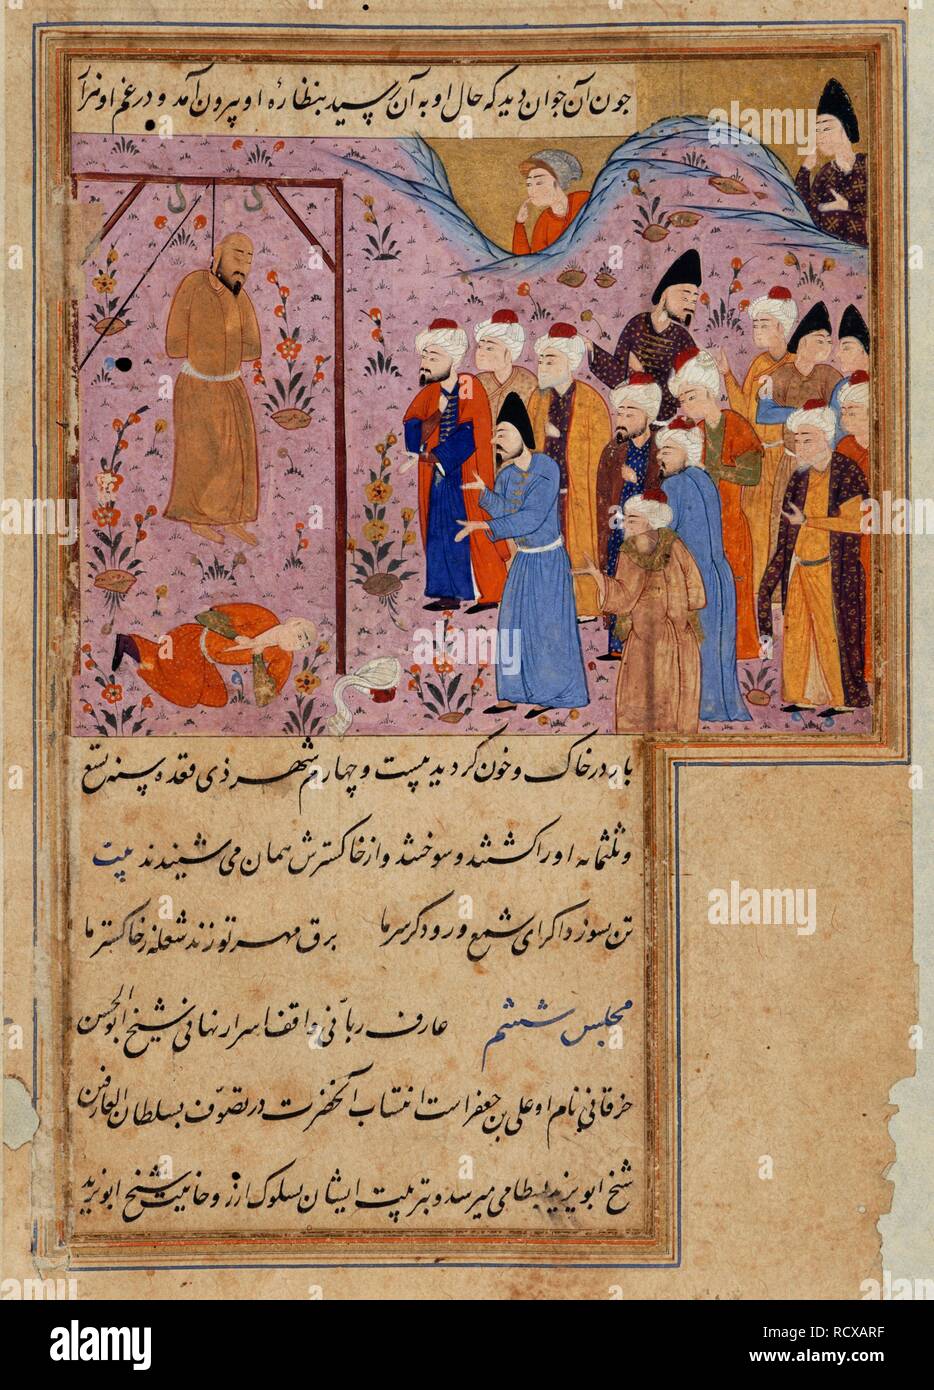 چون آن جوان دید که حال او به آن رسید بنظارهٔ او بیرون آمد و در غم او نعرهٔ
بار در خاک و خون کردید بیست و چهارم شهر ذی قعده سنه تسع
و ثلثمائه او را کشتند و سوختند و از خاکسترش همان می شنیدند بیت
تن بسوزد اکر ای شمع ورود کر سر ما برق مهر تو زند شعله ز خاکستر ما
مجلس ششم عارف ربانی واقف اسرار نهانی شیخ ابوالحسن
خرقانی نام او علی بن جعفر است انتساب آنحضرت در تصوف بسلطان العارفین
شیخ ابویزید بسطامی میرسد و تربیت ایشان بسلوک از روحانیت شیخ ابویزید
alamy
Image ID: RCXARF
www.alamy.com